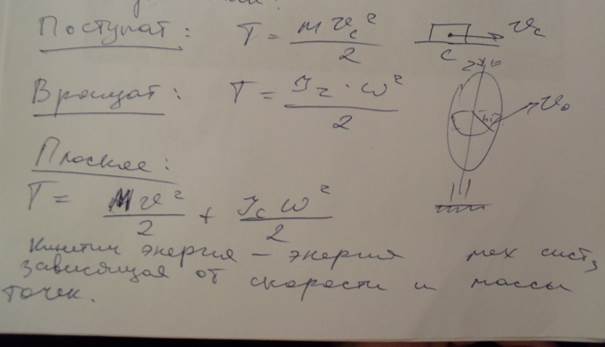 Поступат: T = mv_c²/2
v_c
C
Вращат: T = J_z · ω²/2
Плоское:
T = Mv²/2 + J_c ω²/2
Кинетич энергия – энергия мех сист,
зависящая от скорости и массы
точек.